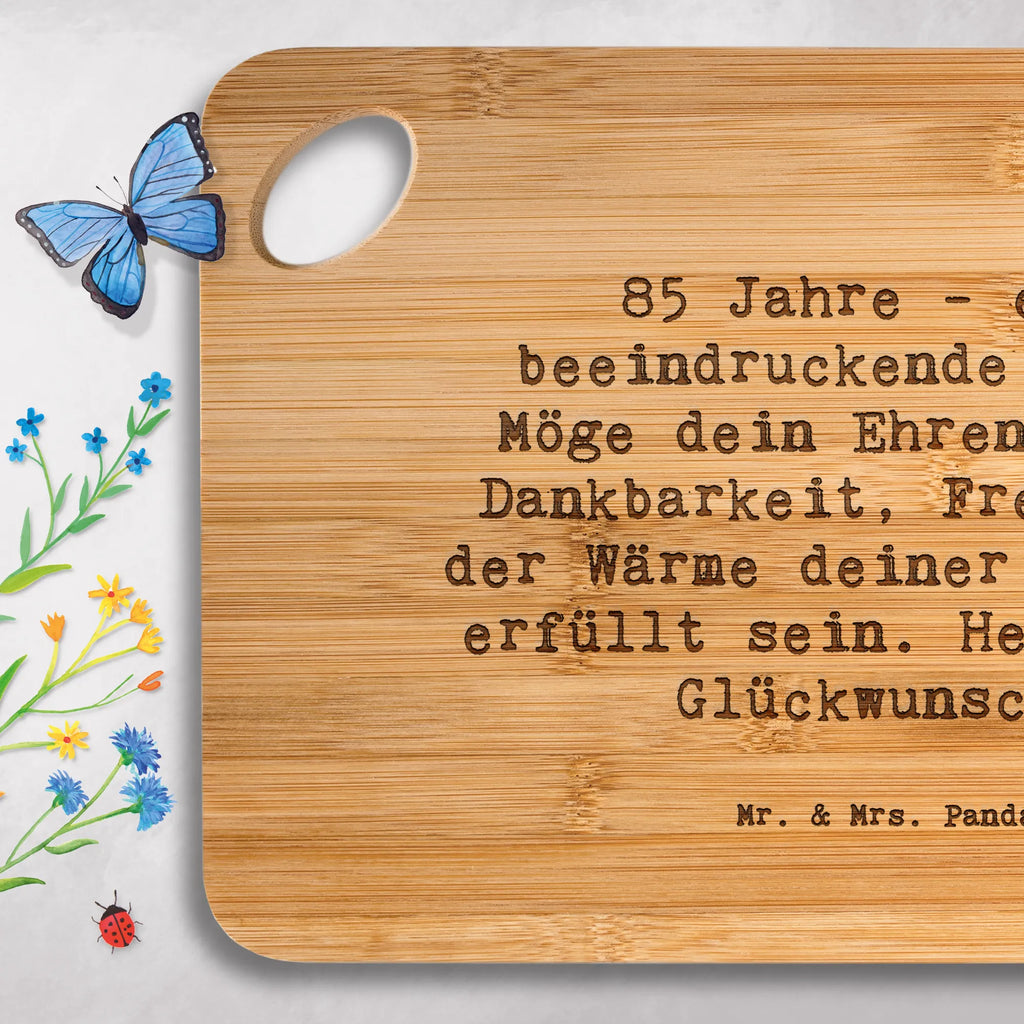 85 Jahre – e
beeindruckende
Möge dein Ehren
Dankbarkeit, Fre
der Wärme deiner
erfüllt sein. He
Glückwunsc
Mr. & Mrs. Panda